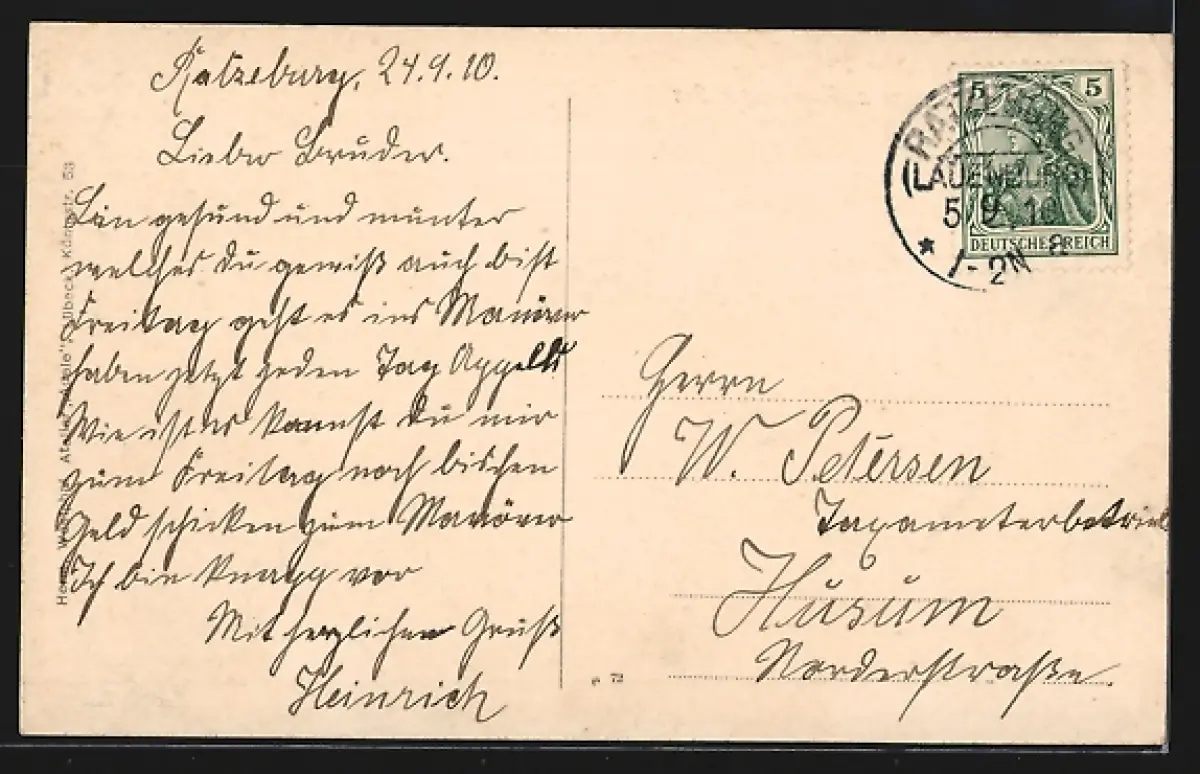 Ratzeburg, 24.9.10.
Lieber Bruder.
Bin gesund und munter
welches du gewiß auch bist
Freitag geht es ins Manöver
haben jetzt jeden Tag Appells
Wie ist es kannst du mir
zum Freitag noch bischen
Geld schicken zum Manöver
Ich bin knapp vor
Mit herzlichen Gruß
Heinrich
5 5
DEUTSCHES REICH
RATZEBURG
(LAUENBURG)
5. 9. 10
1-2N
Herrn
W. Petersen
Taxameterbetrieb
Husum
Norderstraße.
Lübeck, Königstr.